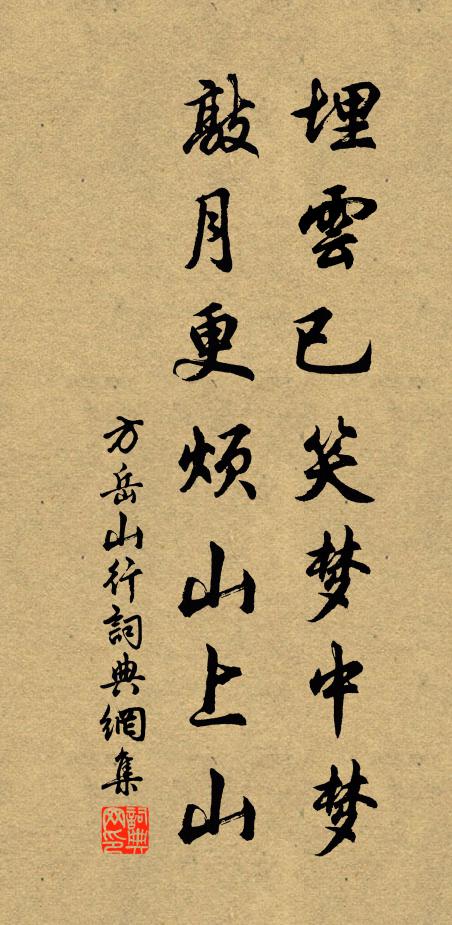 埋雲已笑梦中梦
敲月更烦山上山
方岳山行詞典網集
詞典網印